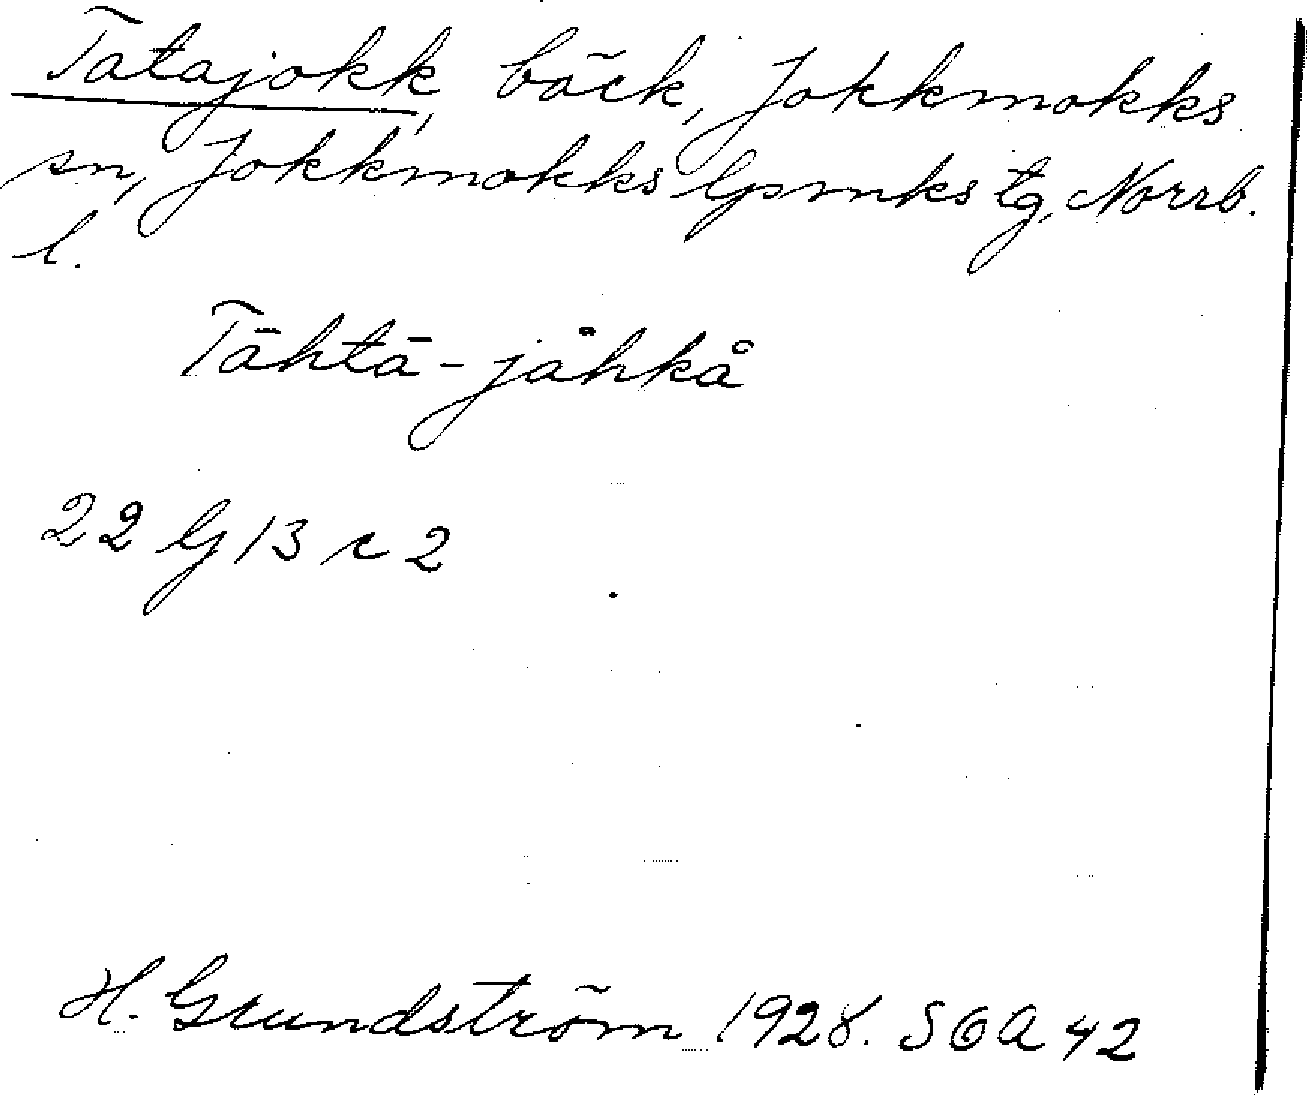 Tatajokk, bäck, Jokkmokks
sn, Jokkmokks lpmks tg, Norrb.
l.
Tāhtā-jåhkå
22 G 13 c 2
H. Grundström 1928. SOA 42